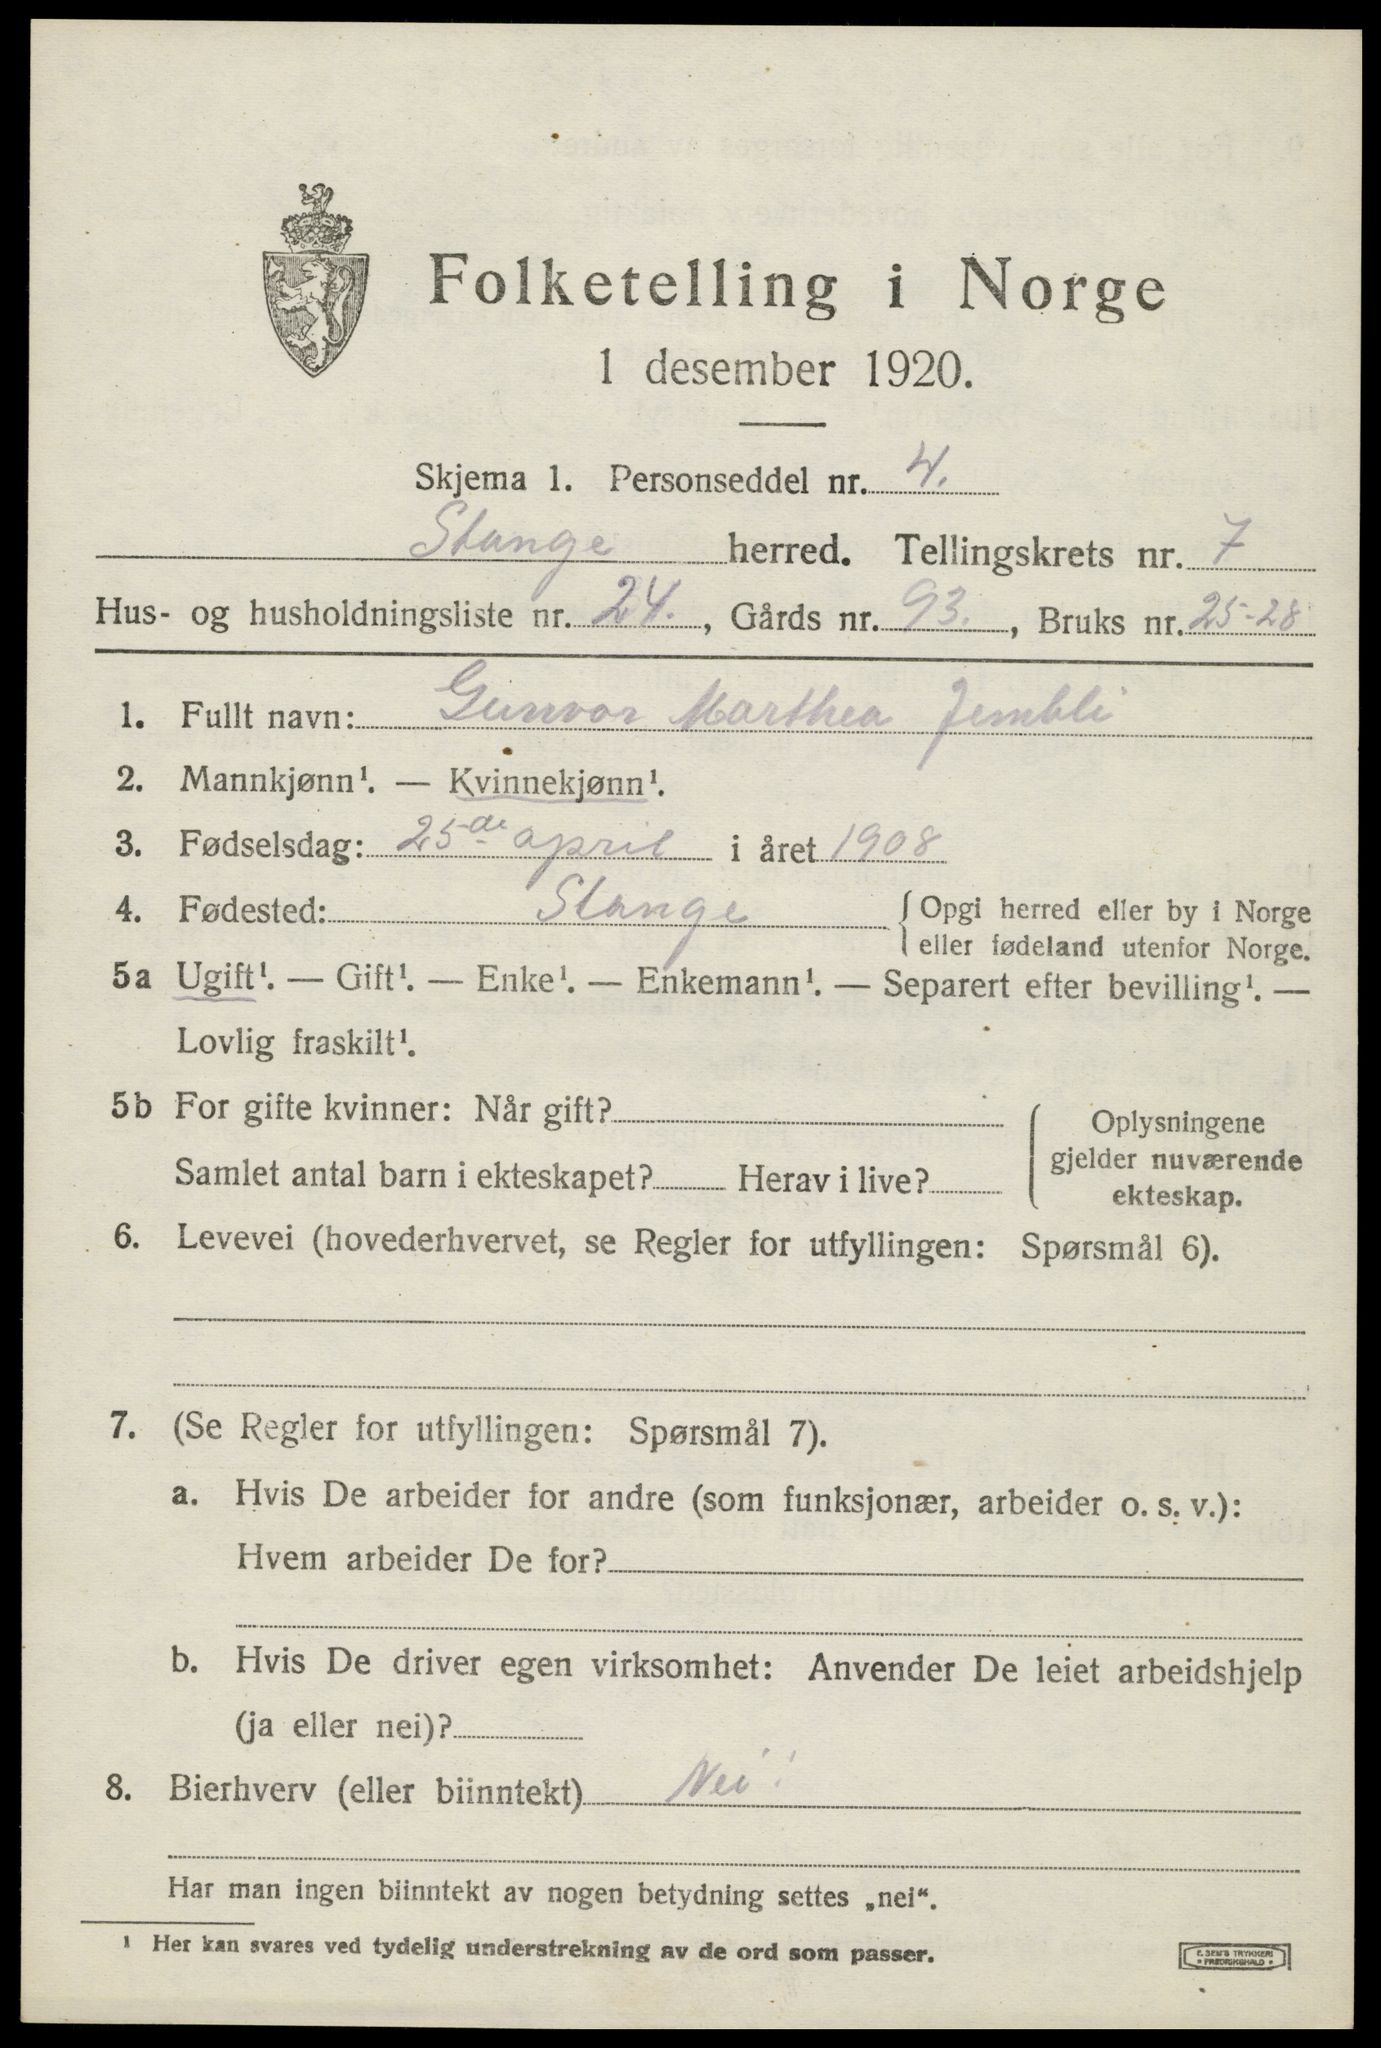 Folketelling i Norge
1 desember 1920.
Skjema 1. Personseddel nr. 4.
Stange herred. Tellingskrets nr. 7
Hus- og husholdningsliste nr. 24., Gårds nr. 93., Bruks nr. 25-28
1. Fullt navn: Gunvor Marthea Jembli
2. Mannkjønn¹. — Kvinnekjønn¹.
3. Fødselsdag: 25de april i året 1908
4. Fødested: Stange { Opgi herred eller by i Norge
eller fødeland utenfor Norge.
5a Ugift¹. — Gift¹. — Enke¹. — Enkemann¹. — Separert efter bevilling¹. —
Lovlig fraskilt¹.
5b For gifte kvinner: Når gift?
Samlet antal barn i ekteskapet? Herav i live?
Oplysningene
gjelder nuværende
ekteskap.
6. Levevei (hovederhvervet, se Regler for utfyllingen: Spørsmål 6).
7. (Se Regler for utfyllingen: Spørsmål 7).
a. Hvis De arbeider for andre (som funksjonær, arbeider o. s. v.):
Hvem arbeider De for?
b. Hvis De driver egen virksomhet: Anvender De leiet arbeidshjelp
(ja eller nei)?
8. Bierhverv (eller biinntekt) Nei!
Har man ingen biinntekt av nogen betydning settes „nei“.
¹ Her kan svares ved tydelig understrekning av de ord som passer.
E. SEM'S TRYKKERI
• FREDRIKSHALD •